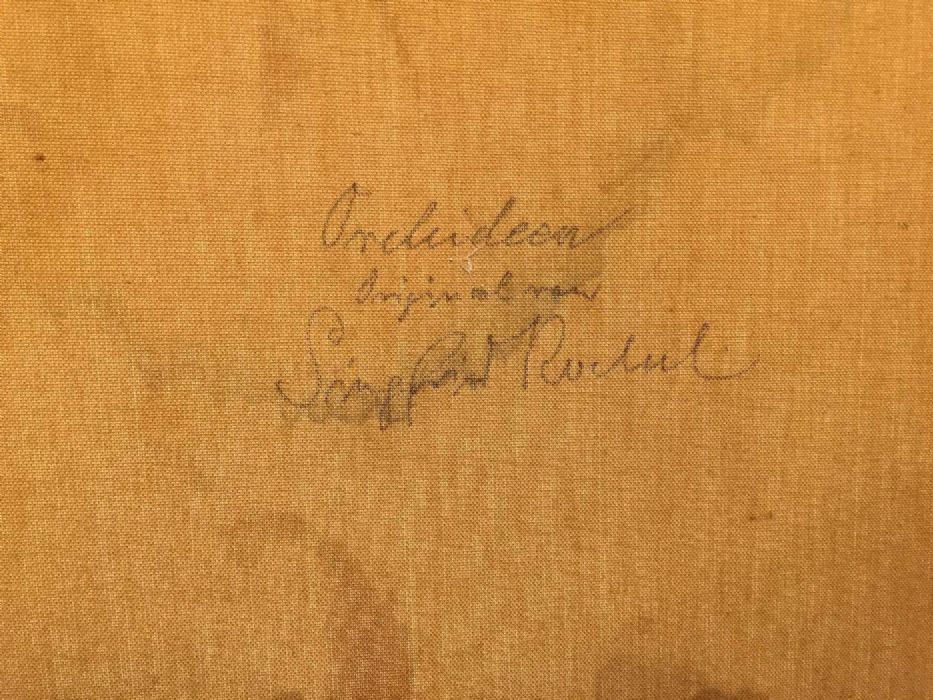 Orchideen
Original von
Siegfried